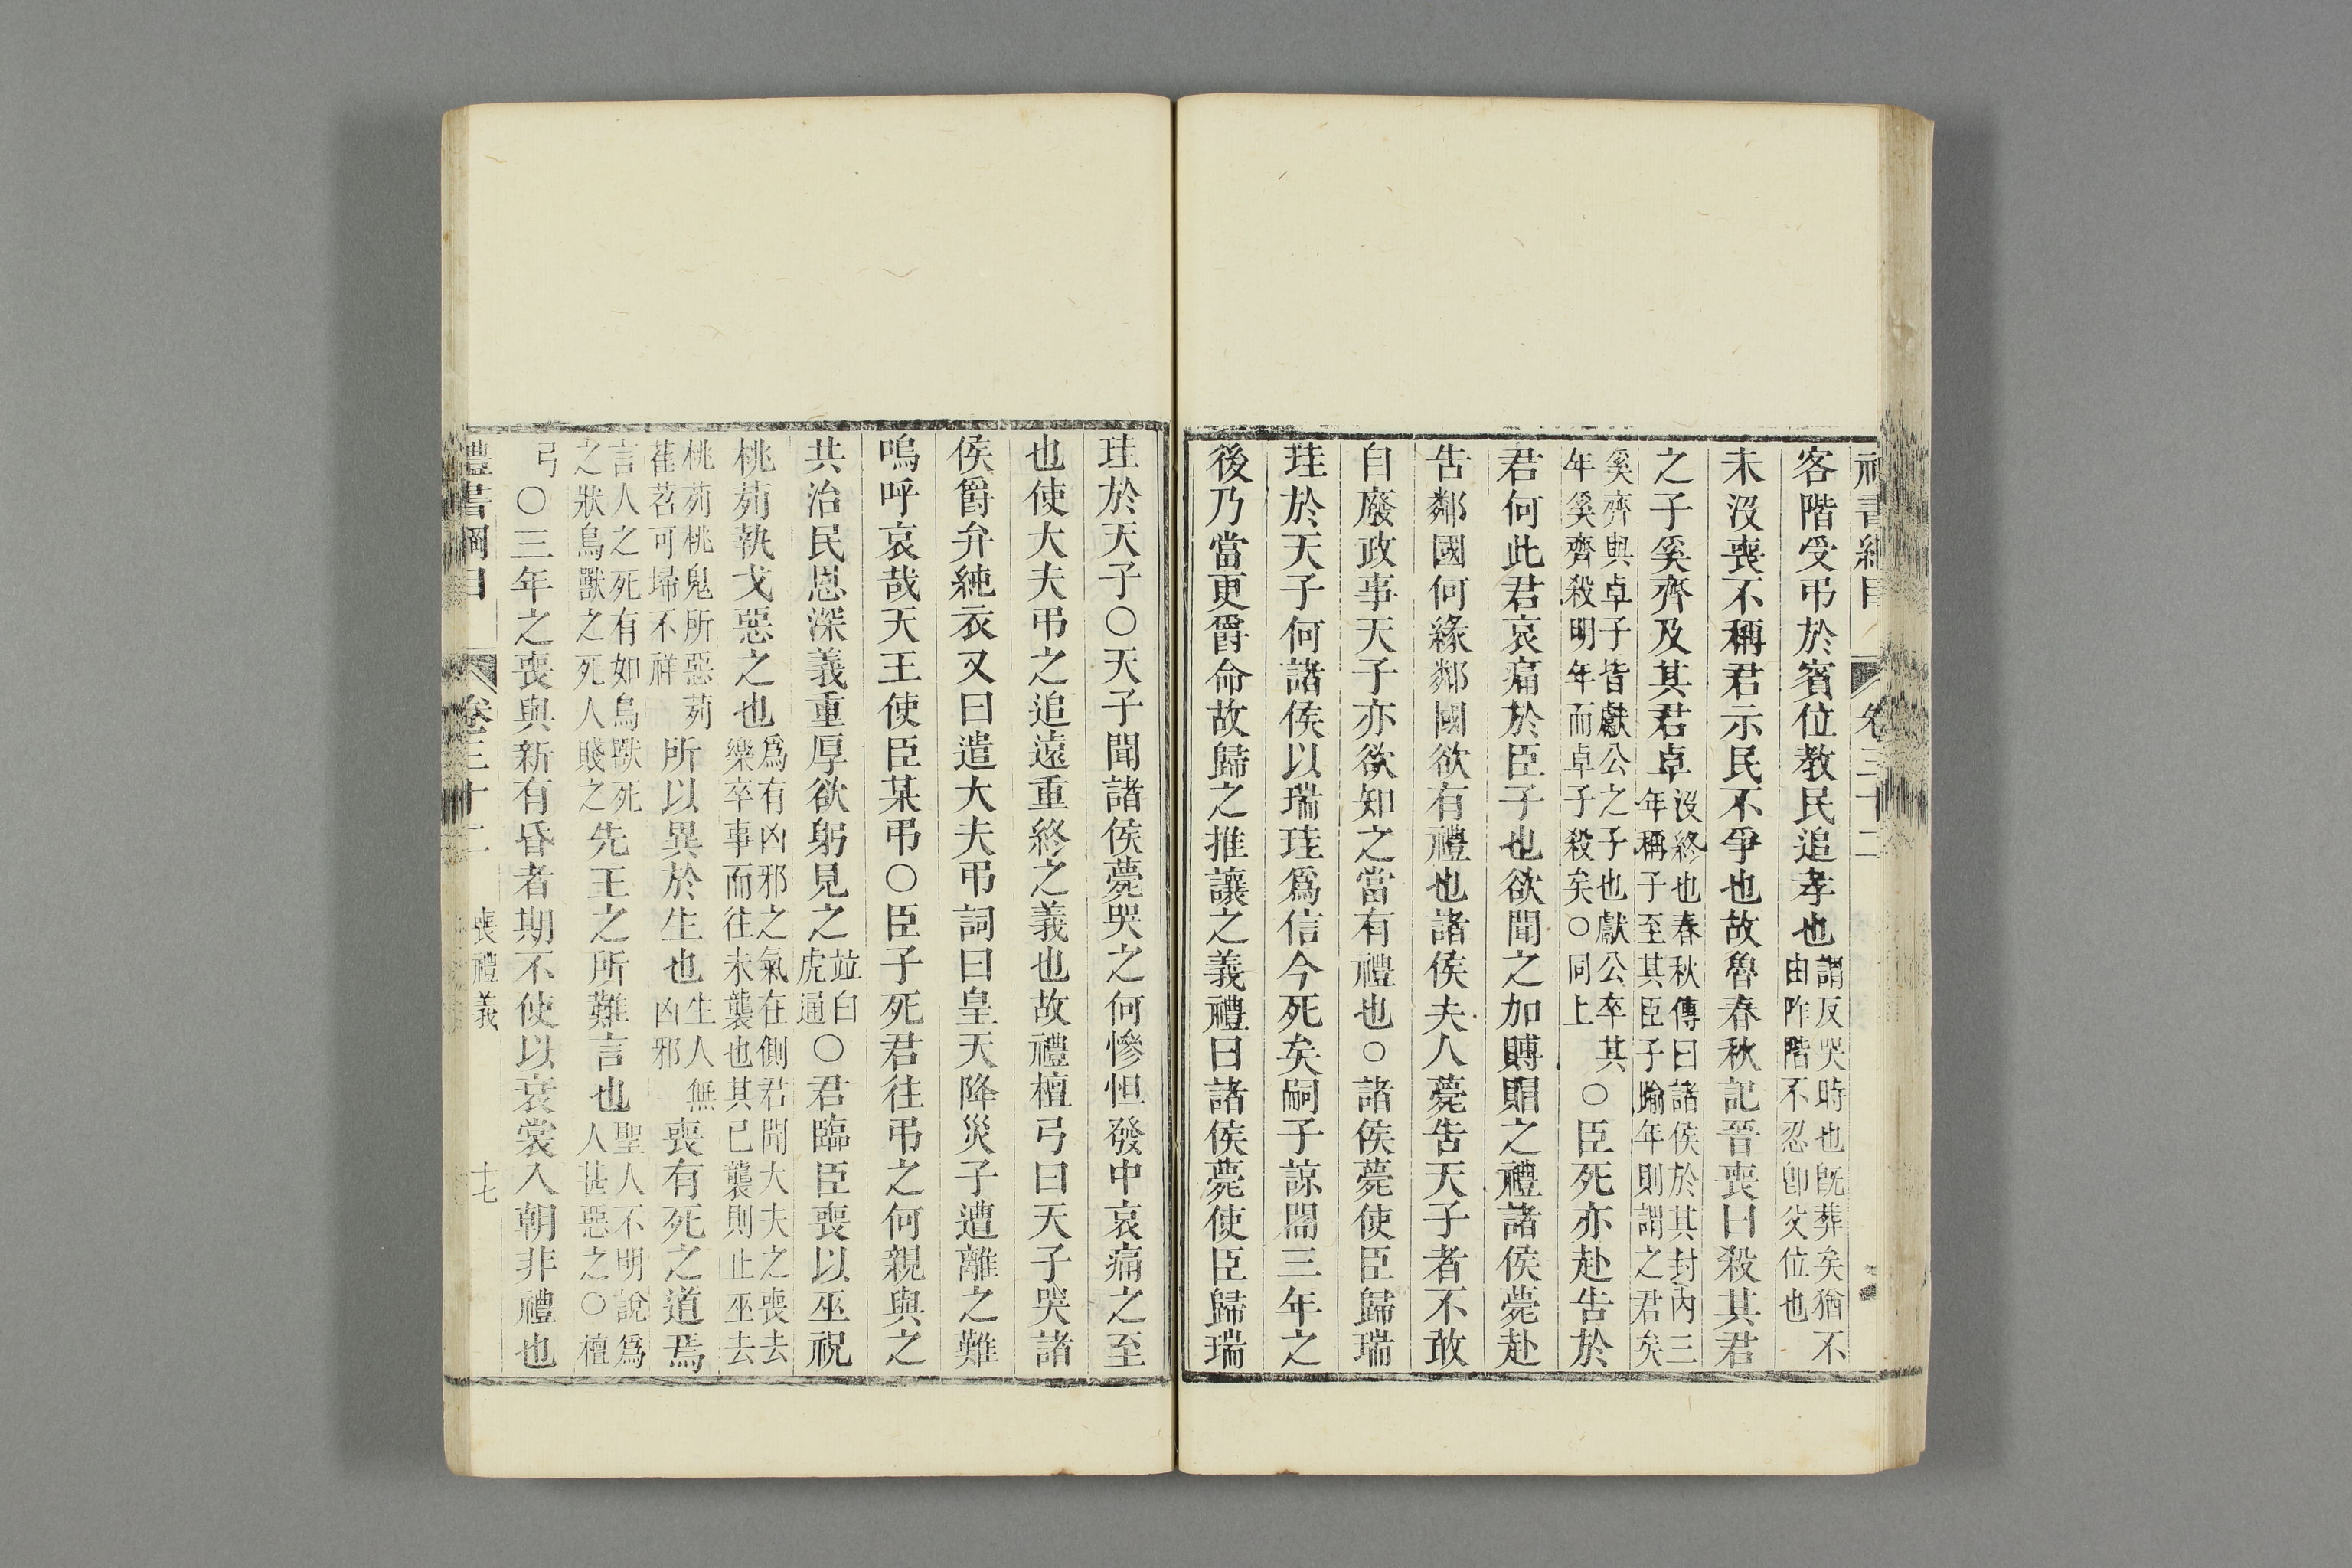 禮書綱目 卷三十二
客階受弔於賓位教民追孝也謂反哭時也旣葬矣猶不由阼階不忍卽父位也
未沒喪不稱君示民不爭也故魯春秋記晉喪曰殺其君
之子奚齊及其君卓沒終也春秋傳曰諸侯於其封內三年稱子至其臣子踰年則謂之君矣
奚齊與卓子皆獻公之子也獻公卒其年奚齊殺明年而卓子殺矣○同上○臣死亦赴告於
君何此君哀痛於臣子也欲聞之加賻賵之禮諸侯薨赴
告鄰國何緣鄰國欲有禮也諸侯夫人薨告天子者不敢
自廢政事天子亦欲知之當有禮也○諸侯薨使臣歸瑞
珪於天子何諸侯以瑞珪爲信今死矣嗣子諒闇三年之
後乃當更爵命故歸之推讓之義禮曰諸侯薨使臣歸瑞
珪於天子○天子聞諸侯薨哭之何慘怛發中哀痛之至
也使大夫弔之追遠重終之義也故禮檀弓曰天子哭諸
侯爵弁純衣又曰遣大夫弔詞曰皇天降災子遭離之難
嗚呼哀哉天王使臣某弔○臣子死君往弔之何親與之
共治民恩深義重厚欲躬見之並白虎通○君臨臣喪以巫祝
桃茢執戈惡之也爲有凶邪之氣在側君聞大夫之喪去樂卒事而往未襲也其已襲則止巫去
桃茢桃鬼所惡茢萑苕可埽不祥所以異於生也生人無凶邪喪有死之道焉
言人之死有如鳥獸死之狀鳥獸之死人賤之先王之所難言也聖人不明說爲人甚惡之○檀
弓○三年之喪與新有昏者期不使以衰裳入朝非禮也
禮書綱目 卷三十二 喪禮義 十七